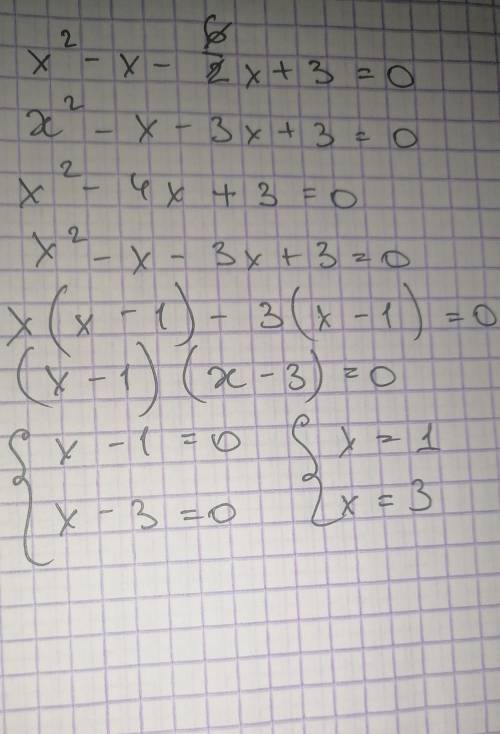 x² - x - 6/2 x + 3 = 0
x² - x - 3x + 3 = 0
x² - 4x + 3 = 0
x² - x - 3x + 3 = 0
x(x - 1) - 3(x - 1) = 0
(x - 1) (x - 3) = 0
{ x - 1 = 0 { x = 1
x - 3 = 0 x = 3